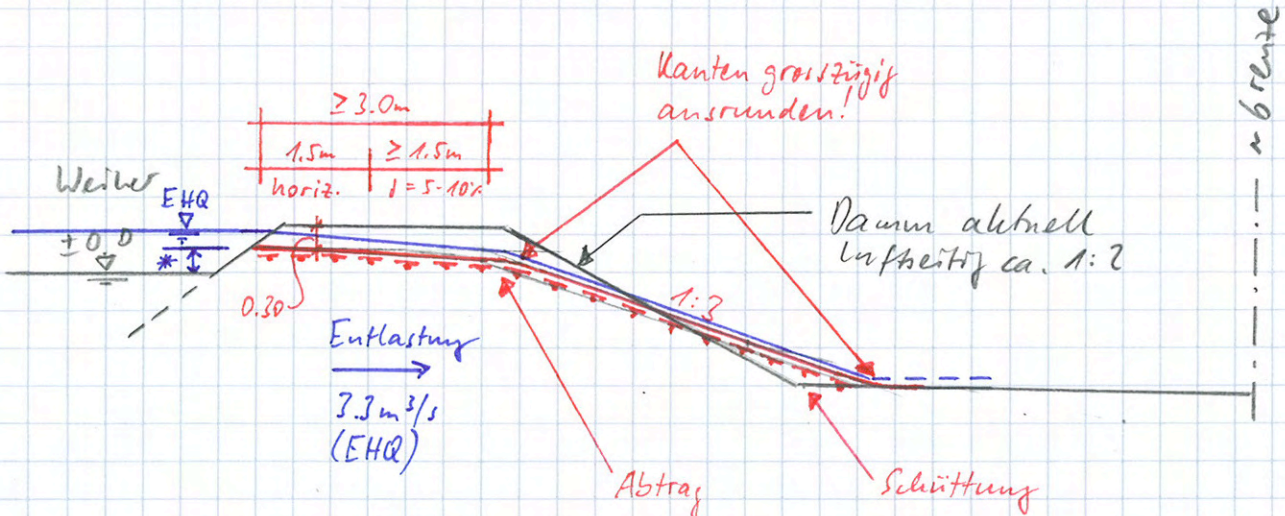 Kanten grosszügig
ausrunden!
≥ 3.0m
1.5m
≥ 1.5m
horiz.
J = 5-10%
Weiher
EHQ
± 0.0
*
0.30
Damm aktuell
luftseitig ca. 1:2
1:3
Entlastung
3.3 m³/s
(EHQ)
Abtrag
Schüttung